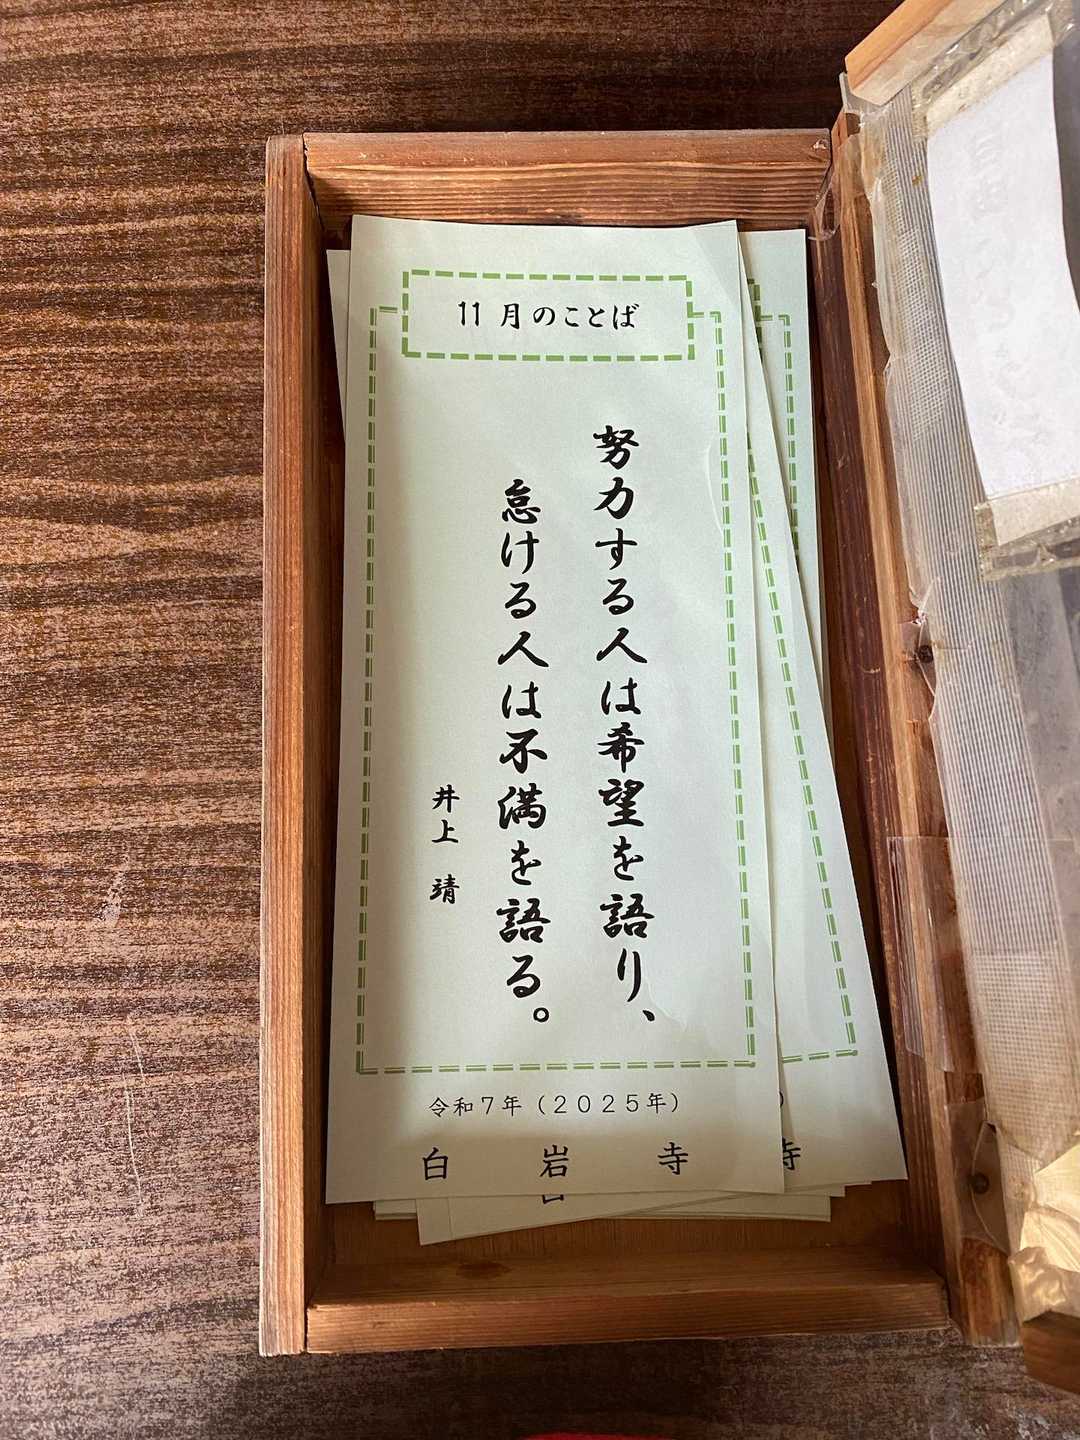 11月のことば
努力する人は希望を語り、
怠ける人は不満を語る。
井上 靖
令和7年（２０２５年）
白岩寺
寺